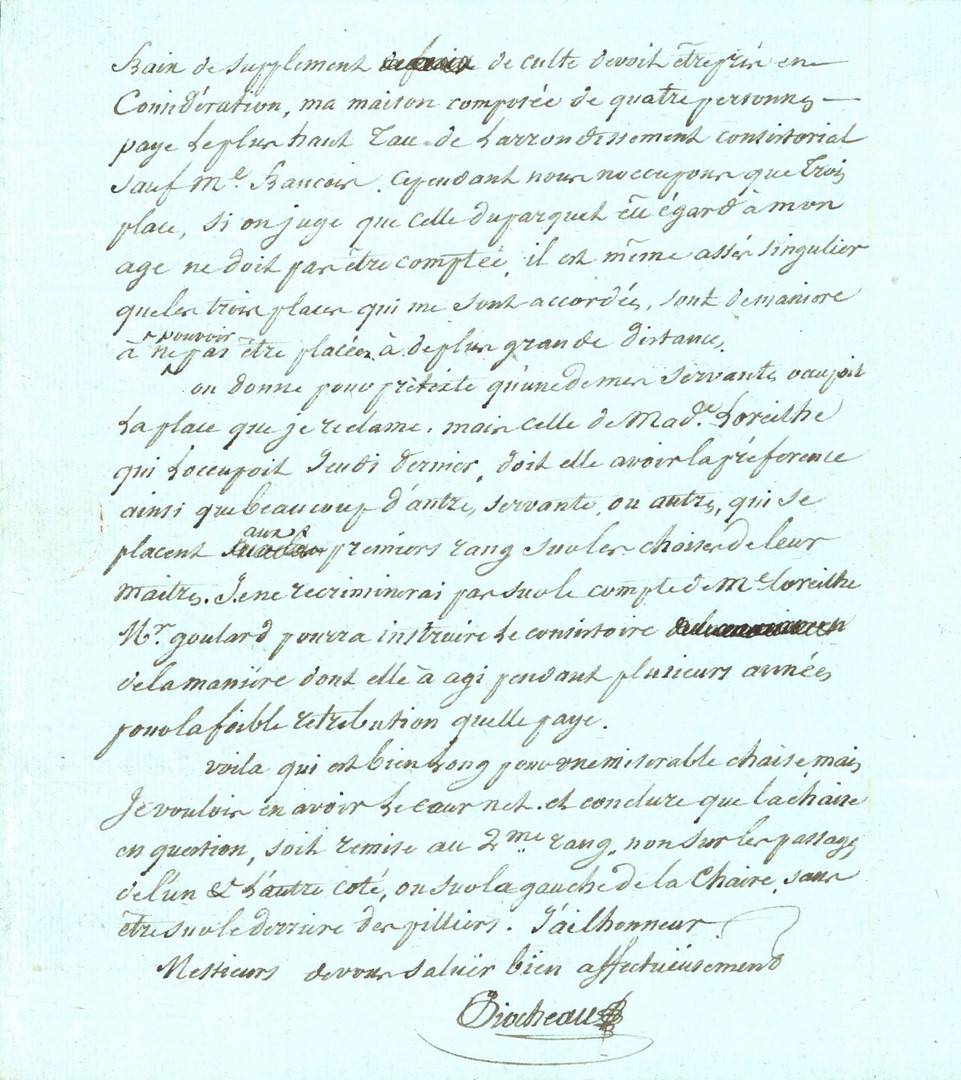 de supplement de culte devoit être pris en
Considération, ma maison composée de quatre personnes
paye le plus haut Taux de Larrondissement consistorial
sauf Me. Rancois. cependant nous noccupons que trois
place, si on juge que celle du parquet eu égard à mon
age ne doit pas être comptée, il est même assés singulier
que les trois places qui me sont accordées, sont de maniere
à ne pouvoir pas être placées à de plus grande distance.
on donne pour prétexte qu'une de mes servantes occupoit
La place que je réclame. mais celle de Made. Loreilhe
qui Loccupoit Jeudi dernier, doit elle avoir la préference
ainsi que beaucoup d'antres servante, ou autre, qui se
placent aux premiers rang sur les chaises de leur
maitres. Je ne recriminerai pas sur le compte de Me Loreilhe
Mr. goulard pourra instruire le consistoire
de la manière dont elle à agi pendant plusieurs années
pour la foible retribution quelle paye.
voila qui est bien Long pour une miserable chaise, mais
Je voulois en avoir Le cœur net. et conclure que la chaise
en question, soit remise au 2me. rang, non sur les passages
de l'un & L'autre coté, ou sur la gauche de la Chaire, sans
être sur le derriere des pilliers. J'ai Lhonneur
Messieurs de vous saluër bien affectueusement